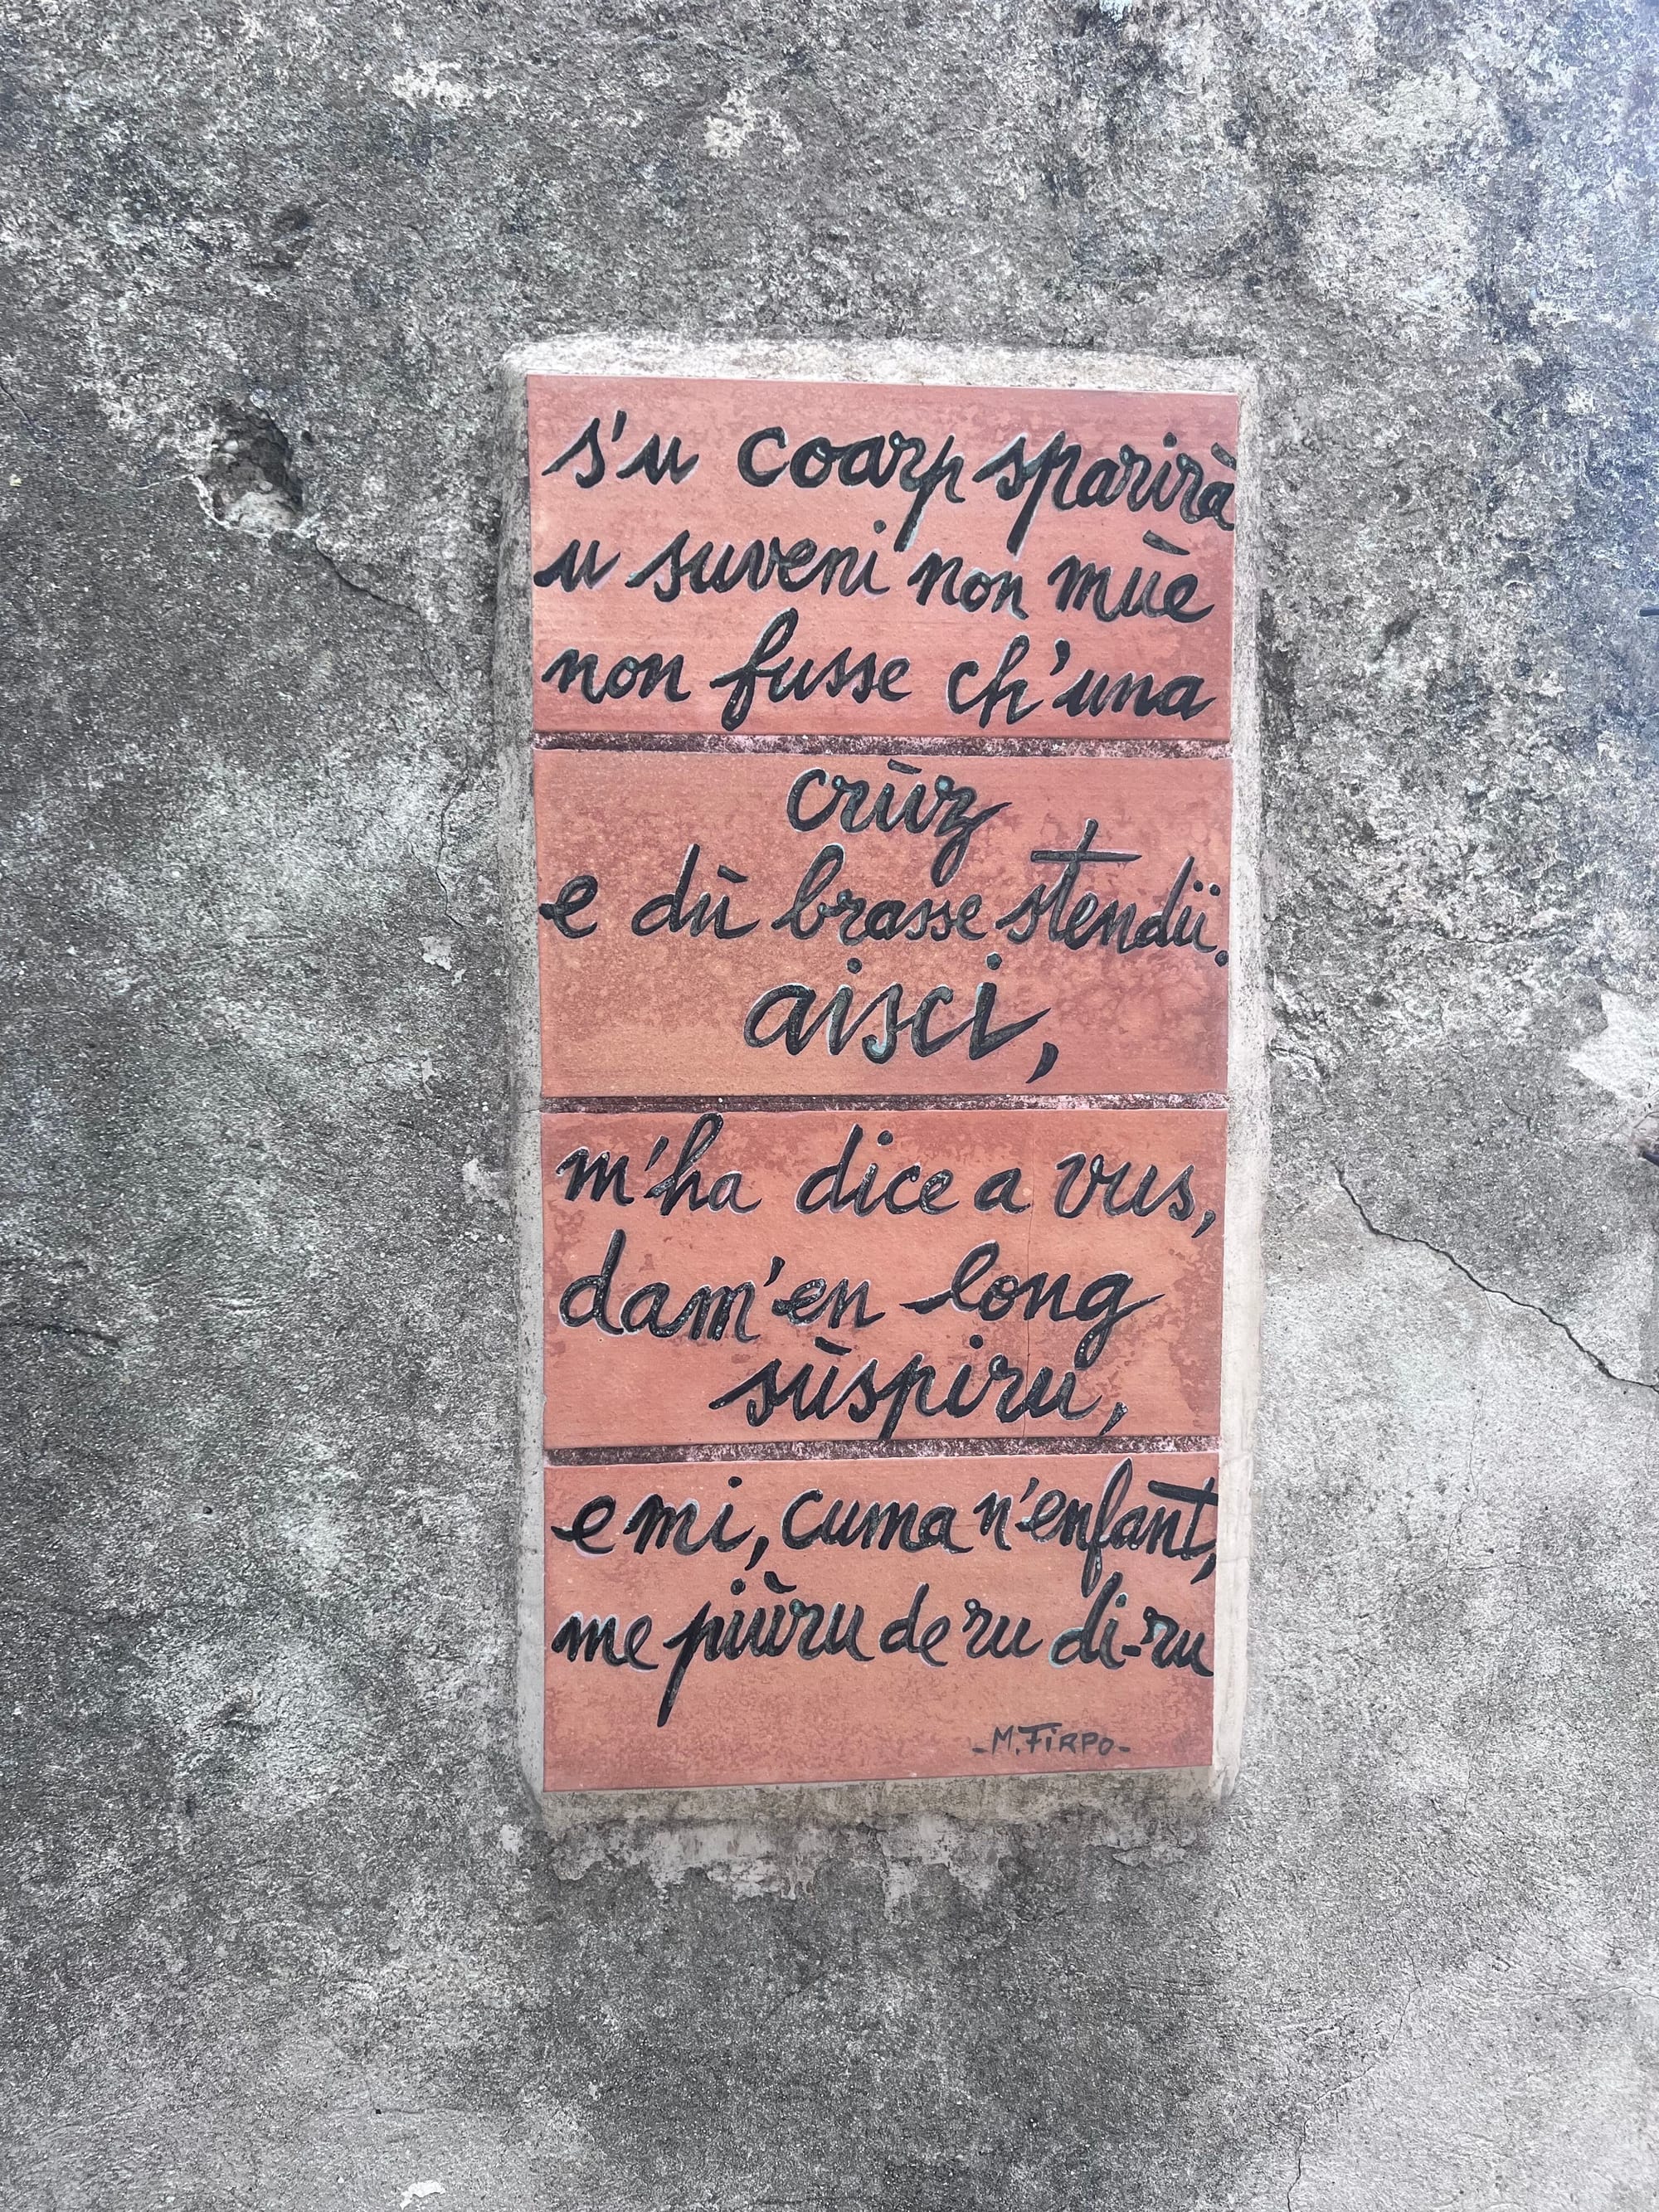 s'u coarp sparirà
u suveni non mùe
non fusse ch'una
crùz
e dù brasse stendü.
aisci,
m'ha dice a vus,
dam'en long
sùspiru,
e mi, cuma n'enfant,
me piùru de ru di-ru
- M. FiRPO -